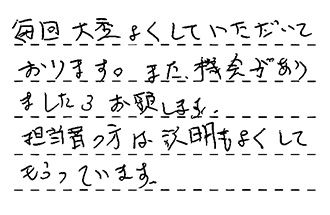 毎回大変よくしていただいて
おります。また、機会があり
ましたらお願します。
担当者の方は説明もよくして
もらっています。